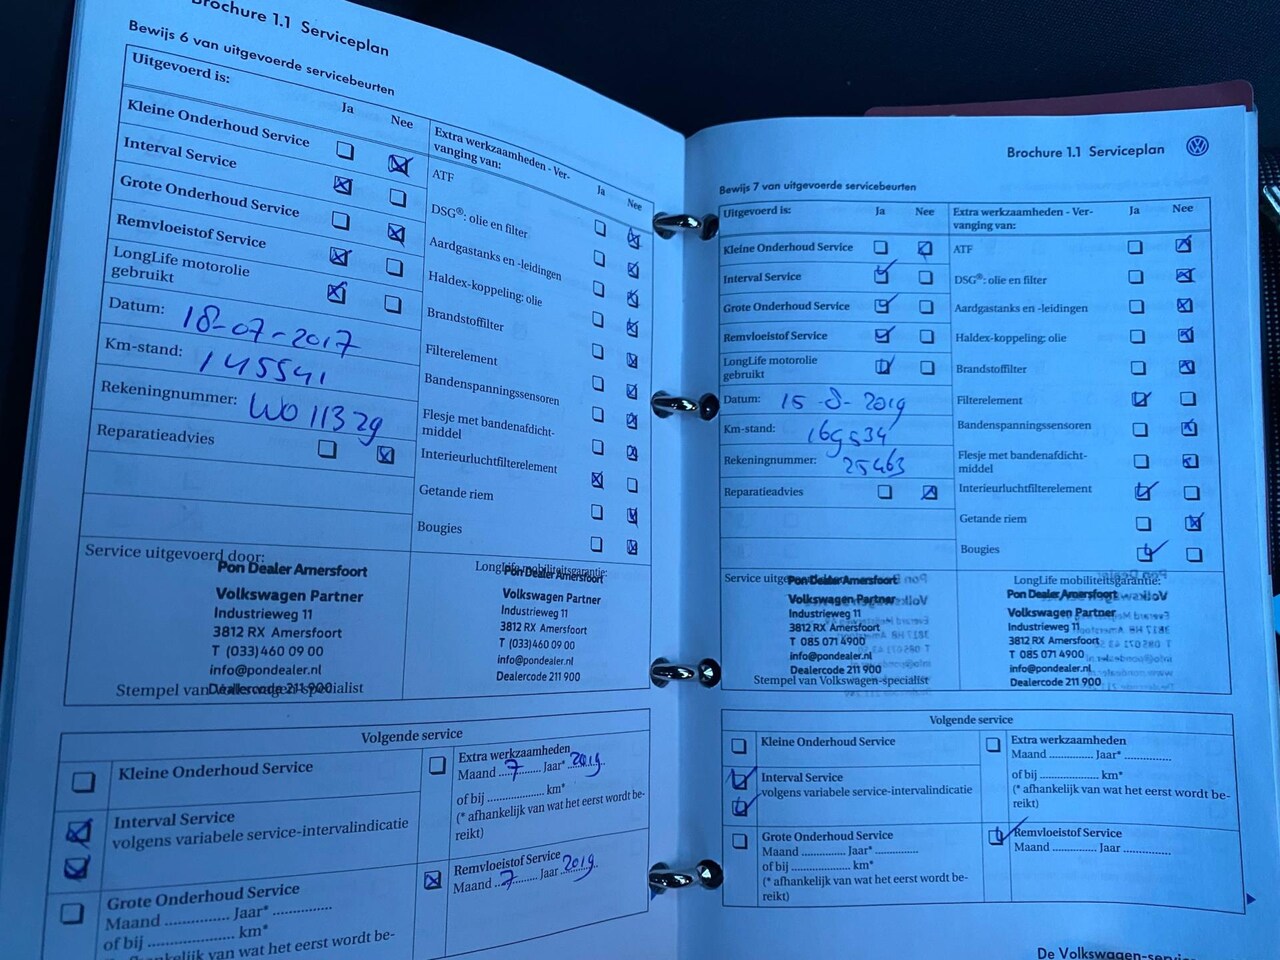 Brochure 1.1 Serviceplan
Bewijs 6 van uitgevoerde servicebeurten
Uitgevoerd is:
Ja
Nee
Kleine Onderhoud Service
Interval Service
Grote Onderhoud Service
Remvloeistof Service
LongLife motorolie
gebruikt
Datum: 18-07-2017
Km-stand: 145541
Rekeningnummer: WO11329
Reparatieadvies
Extra werkzaamheden - Ver-
vanging van:
Ja
Nee
ATF
DSG®: olie en filter
Aardgastanks en -leidingen
Haldex-koppeling: olie
Brandstoffilter
Filterelement
Bandenspanningssensoren
Flesje met bandenafdicht-
middel
Interieurluchtfilterelement
Getande riem
Bougies
Service uitgevoerd door:
Pon Dealer Amersfoort
Volkswagen Partner
Industrieweg 11
3812 RX Amersfoort
T (033)460 09 00
info@pondealer.nl
Dealercode 211 900
Stempel van Volkswagen-specialist
LongLife mobiliteitsgarantie:
Pon Dealer Amersfoort
Volkswagen Partner
Industrieweg 11
3812 RX Amersfoort
T (033)460 09 00
info@pondealer.nl
Dealercode 211 900
Volgende service
Kleine Onderhoud Service
Interval Service
volgens variabele service-intervalindicatie
Grote Onderhoud Service
Maand ............... Jaar* ...............
of bij ............... km*
(* afhankelijk van wat het eerst wordt be-
Extra werkzaamheden
Maand ...7... Jaar* 2019
of bij ............... km*
(* afhankelijk van wat het eerst wordt be-
reikt)
Remvloeistof Service
Maand ...7... Jaar 2019
Brochure 1.1 Serviceplan
Bewijs 7 van uitgevoerde servicebeurten
Uitgevoerd is:
Ja
Nee
Kleine Onderhoud Service
Interval Service
Grote Onderhoud Service
Remvloeistof Service
LongLife motorolie
gebruikt
Datum: 15-8-2019
Km-stand: 169534
Rekeningnummer: 25463
Reparatieadvies
Extra werkzaamheden - Ver-
vanging van:
Ja
Nee
ATF
DSG®: olie en filter
Aardgastanks en -leidingen
Haldex-koppeling: olie
Brandstoffilter
Filterelement
Bandenspanningssensoren
Flesje met bandenafdicht-
middel
Interieurluchtfilterelement
Getande riem
Bougies
Service
Pon Dealer Amersfoort
Volkswagen Partner
Industrieweg 11
3812 RX Amersfoort
T 085 071 4900
info@pondealer.nl
Dealercode 211 900
Stempel van Volkswagen-specialist
LongLife mobiliteitsgarantie:
Pon Dealer Amersfoort
Volkswagen Partner
Industrieweg 11
3812 RX Amersfoort
T 085 071 4900
info@pondealer.nl
Dealercode 211 900
Volgende service
Kleine Onderhoud Service
Interval Service
volgens variabele service-intervalindicatie
Grote Onderhoud Service
Maand ............... Jaar* ...............
of bij ............... km*
(* afhankelijk van wat het eerst wordt be-
reikt)
Extra werkzaamheden
Maand ............... Jaar* ...............
of bij ............... km*
(* afhankelijk van wat het eerst wordt be-
reikt)
Remvloeistof Service
Maand ............... Jaar ...............